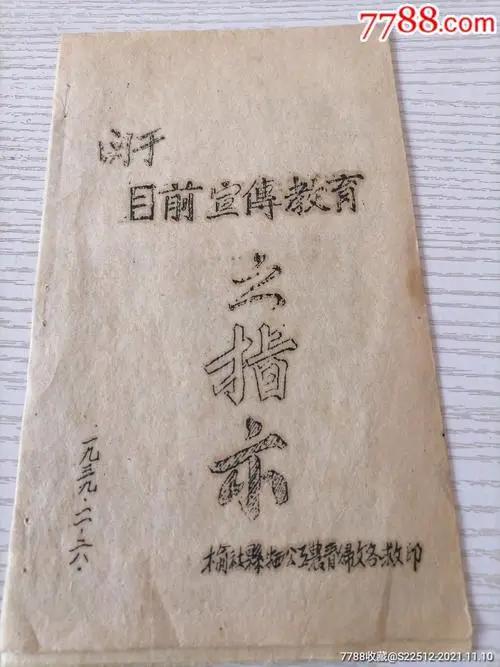 7788.com
関于
目前宣傳教育
之
指
示
一九三九·二·二八·
榆社縣牺公工農青婦文各救印
7788收藏@S22512-2021.11.10